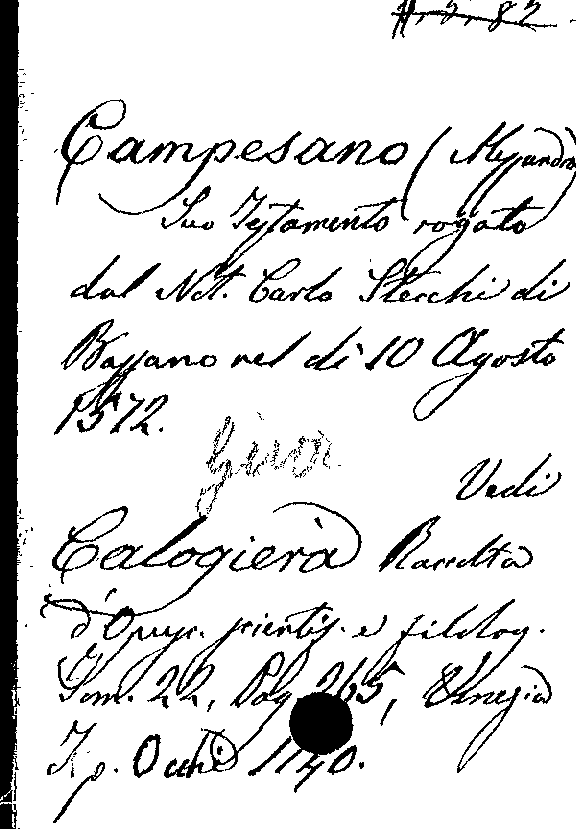 11. 2. 82
Campesano (Alessandro
Suo Testamento rogato
dal Not. Carlo Stecchi di
Bassano nel di 10 Agosto
1572.
Giur
Vedi
Calogierà Raccolta
d'Opusc. scientif. e filolog.
Tom. 22, Pag. 265, Venezia
Tip. Occhi 1740.